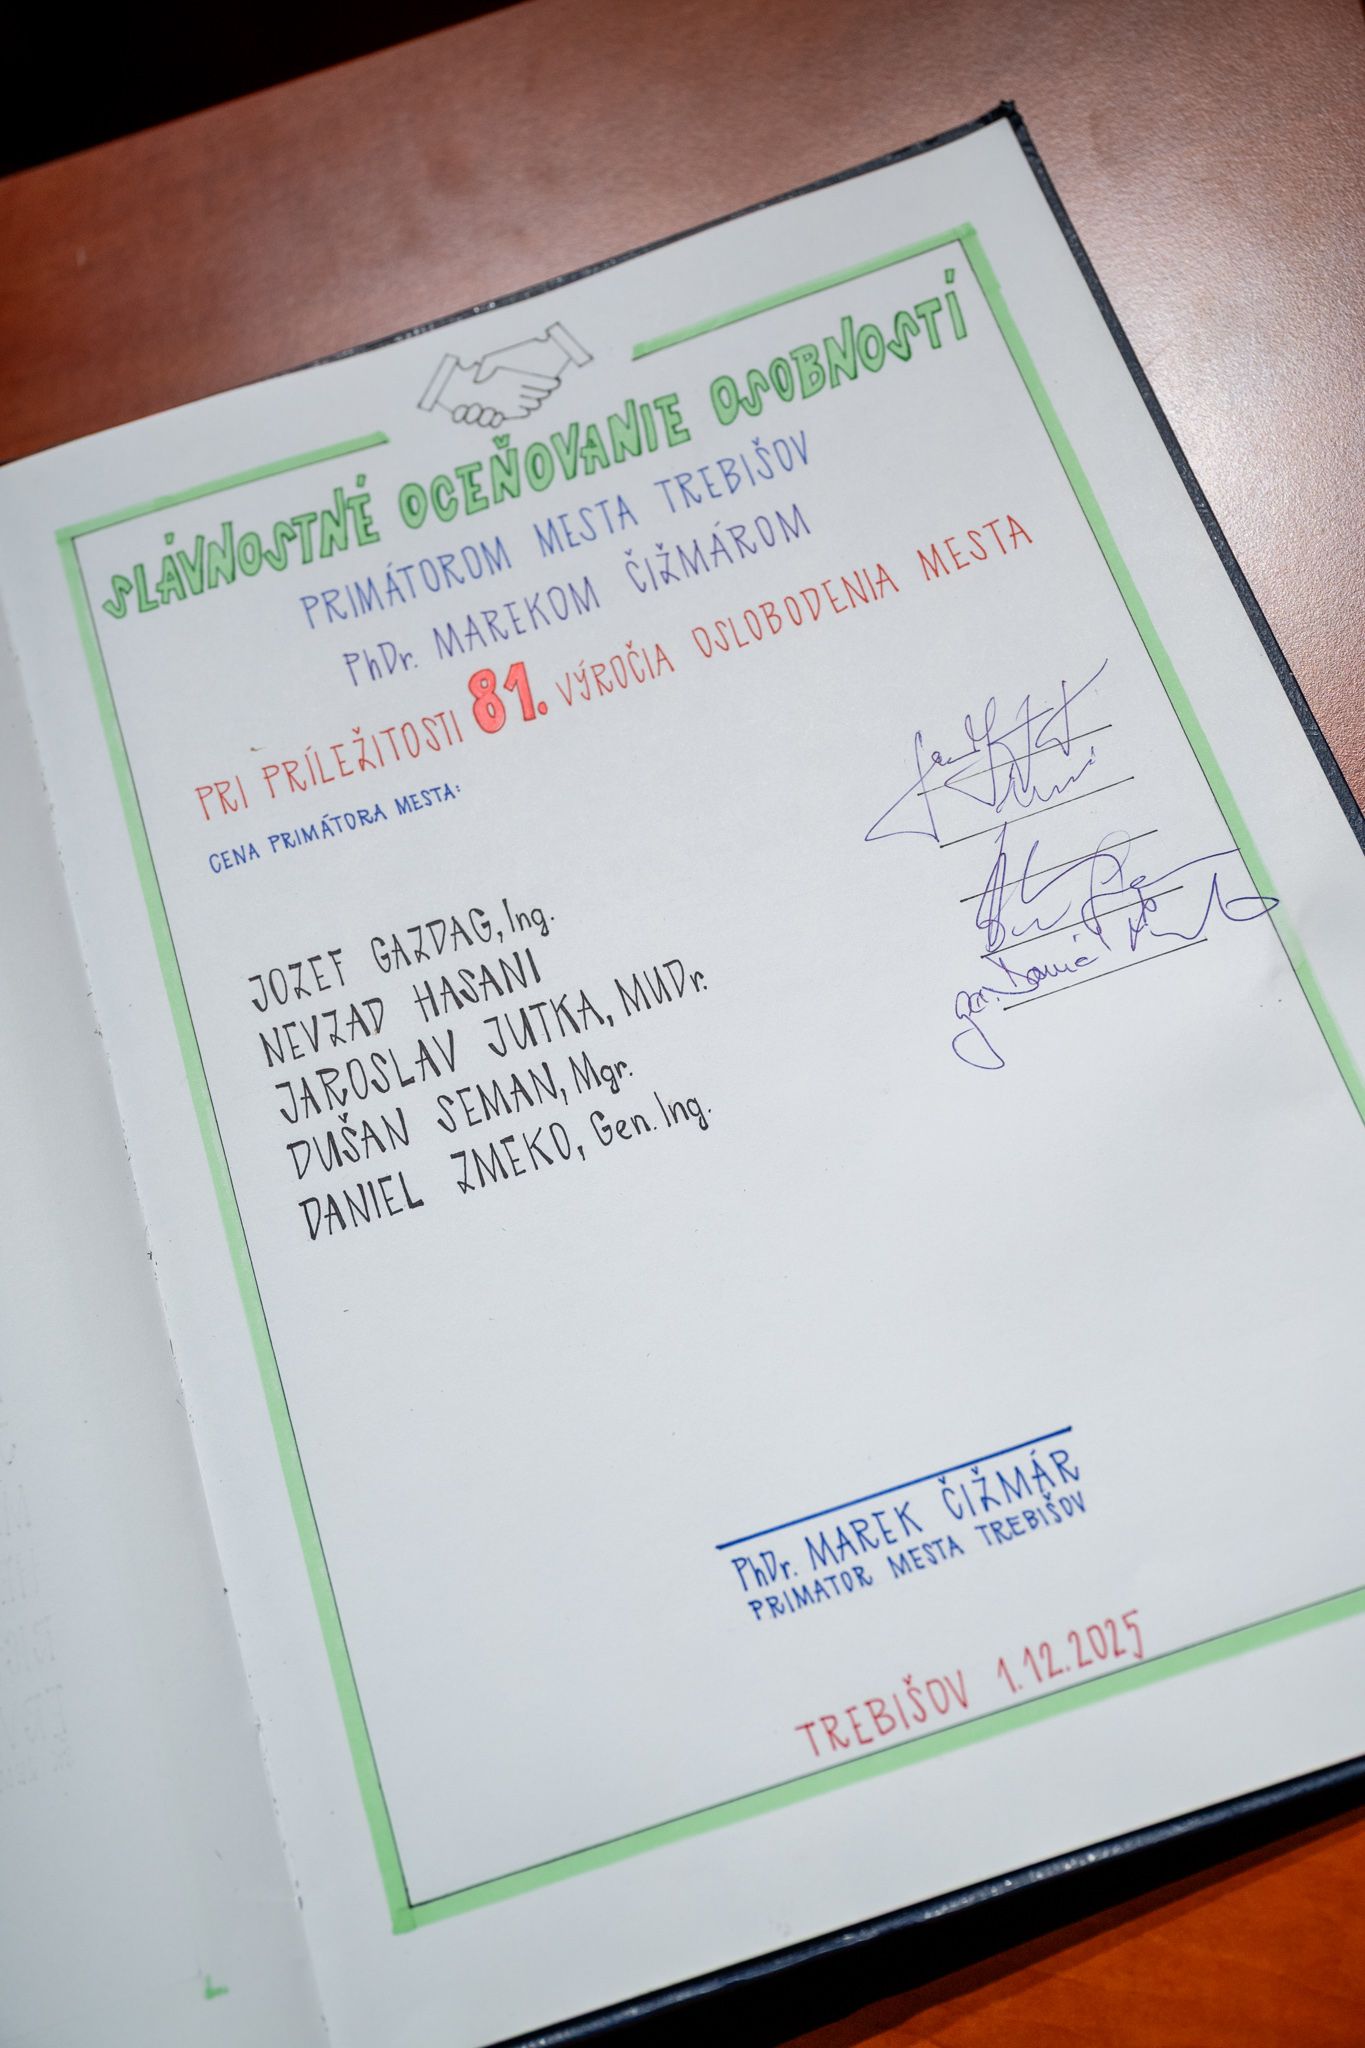 SLÁVNOSTNÉ OCEŇOVANIE OSOBNOSTÍ
PRIMÁTOROM MESTA TREBIŠOV
PhDr. MAREKOM ČIŽMÁROM
PRI PRÍLEŽITOSTI 81. VÝROČIA OSLOBODENIA MESTA
CENA PRIMÁTORA MESTA:
JOZEF GAZDAG, Ing.
NEVZAD HASANI
JAROSLAV JUTKA, MUDr.
DUŠAN SEMAN, Mgr.
DANIEL ZMEKO, Gen. Ing.
gen. Daniel
PhDr. MAREK ČIŽMÁR
PRIMATOR MESTA TREBIŠOV
TREBIŠOV 1.12.2025